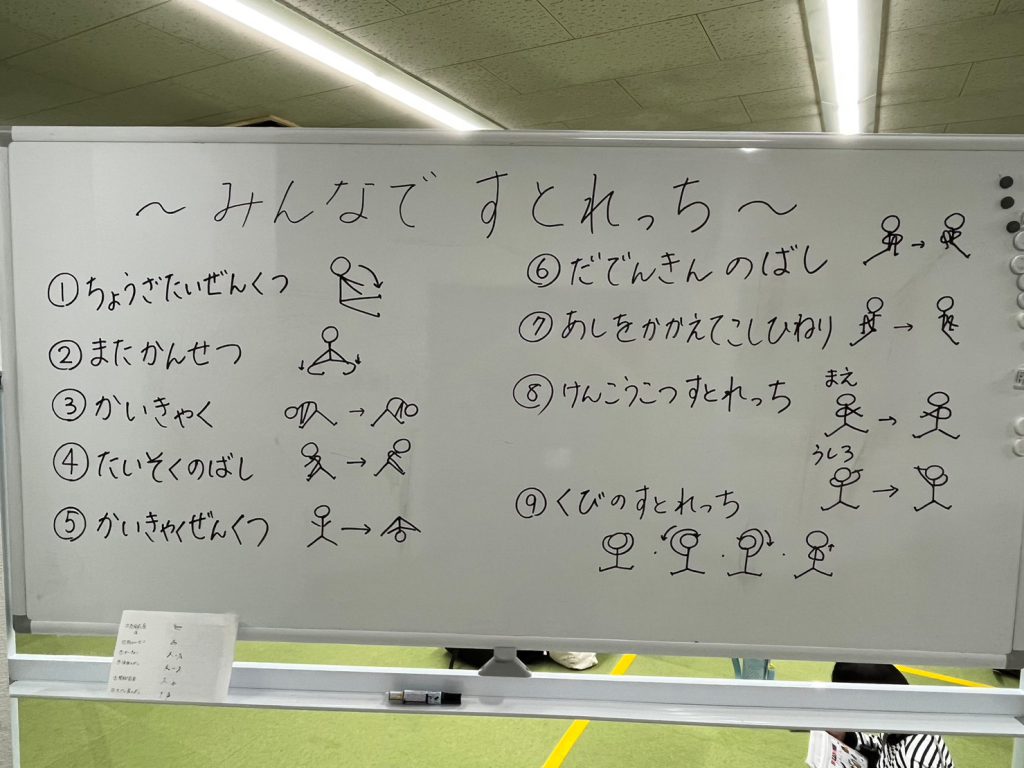 ～みんなですとれっち～
①ちょうざたいぜんくつ
②またかんせつ
③かいきゃく
④たいそくのばし
⑤かいきゃくぜんくつ
⑥だでんきんのばし
⑦あしをかかえてこしひねり
⑧けんこうこつすとれっち
まえ
うしろ
⑨くびのすとれっち